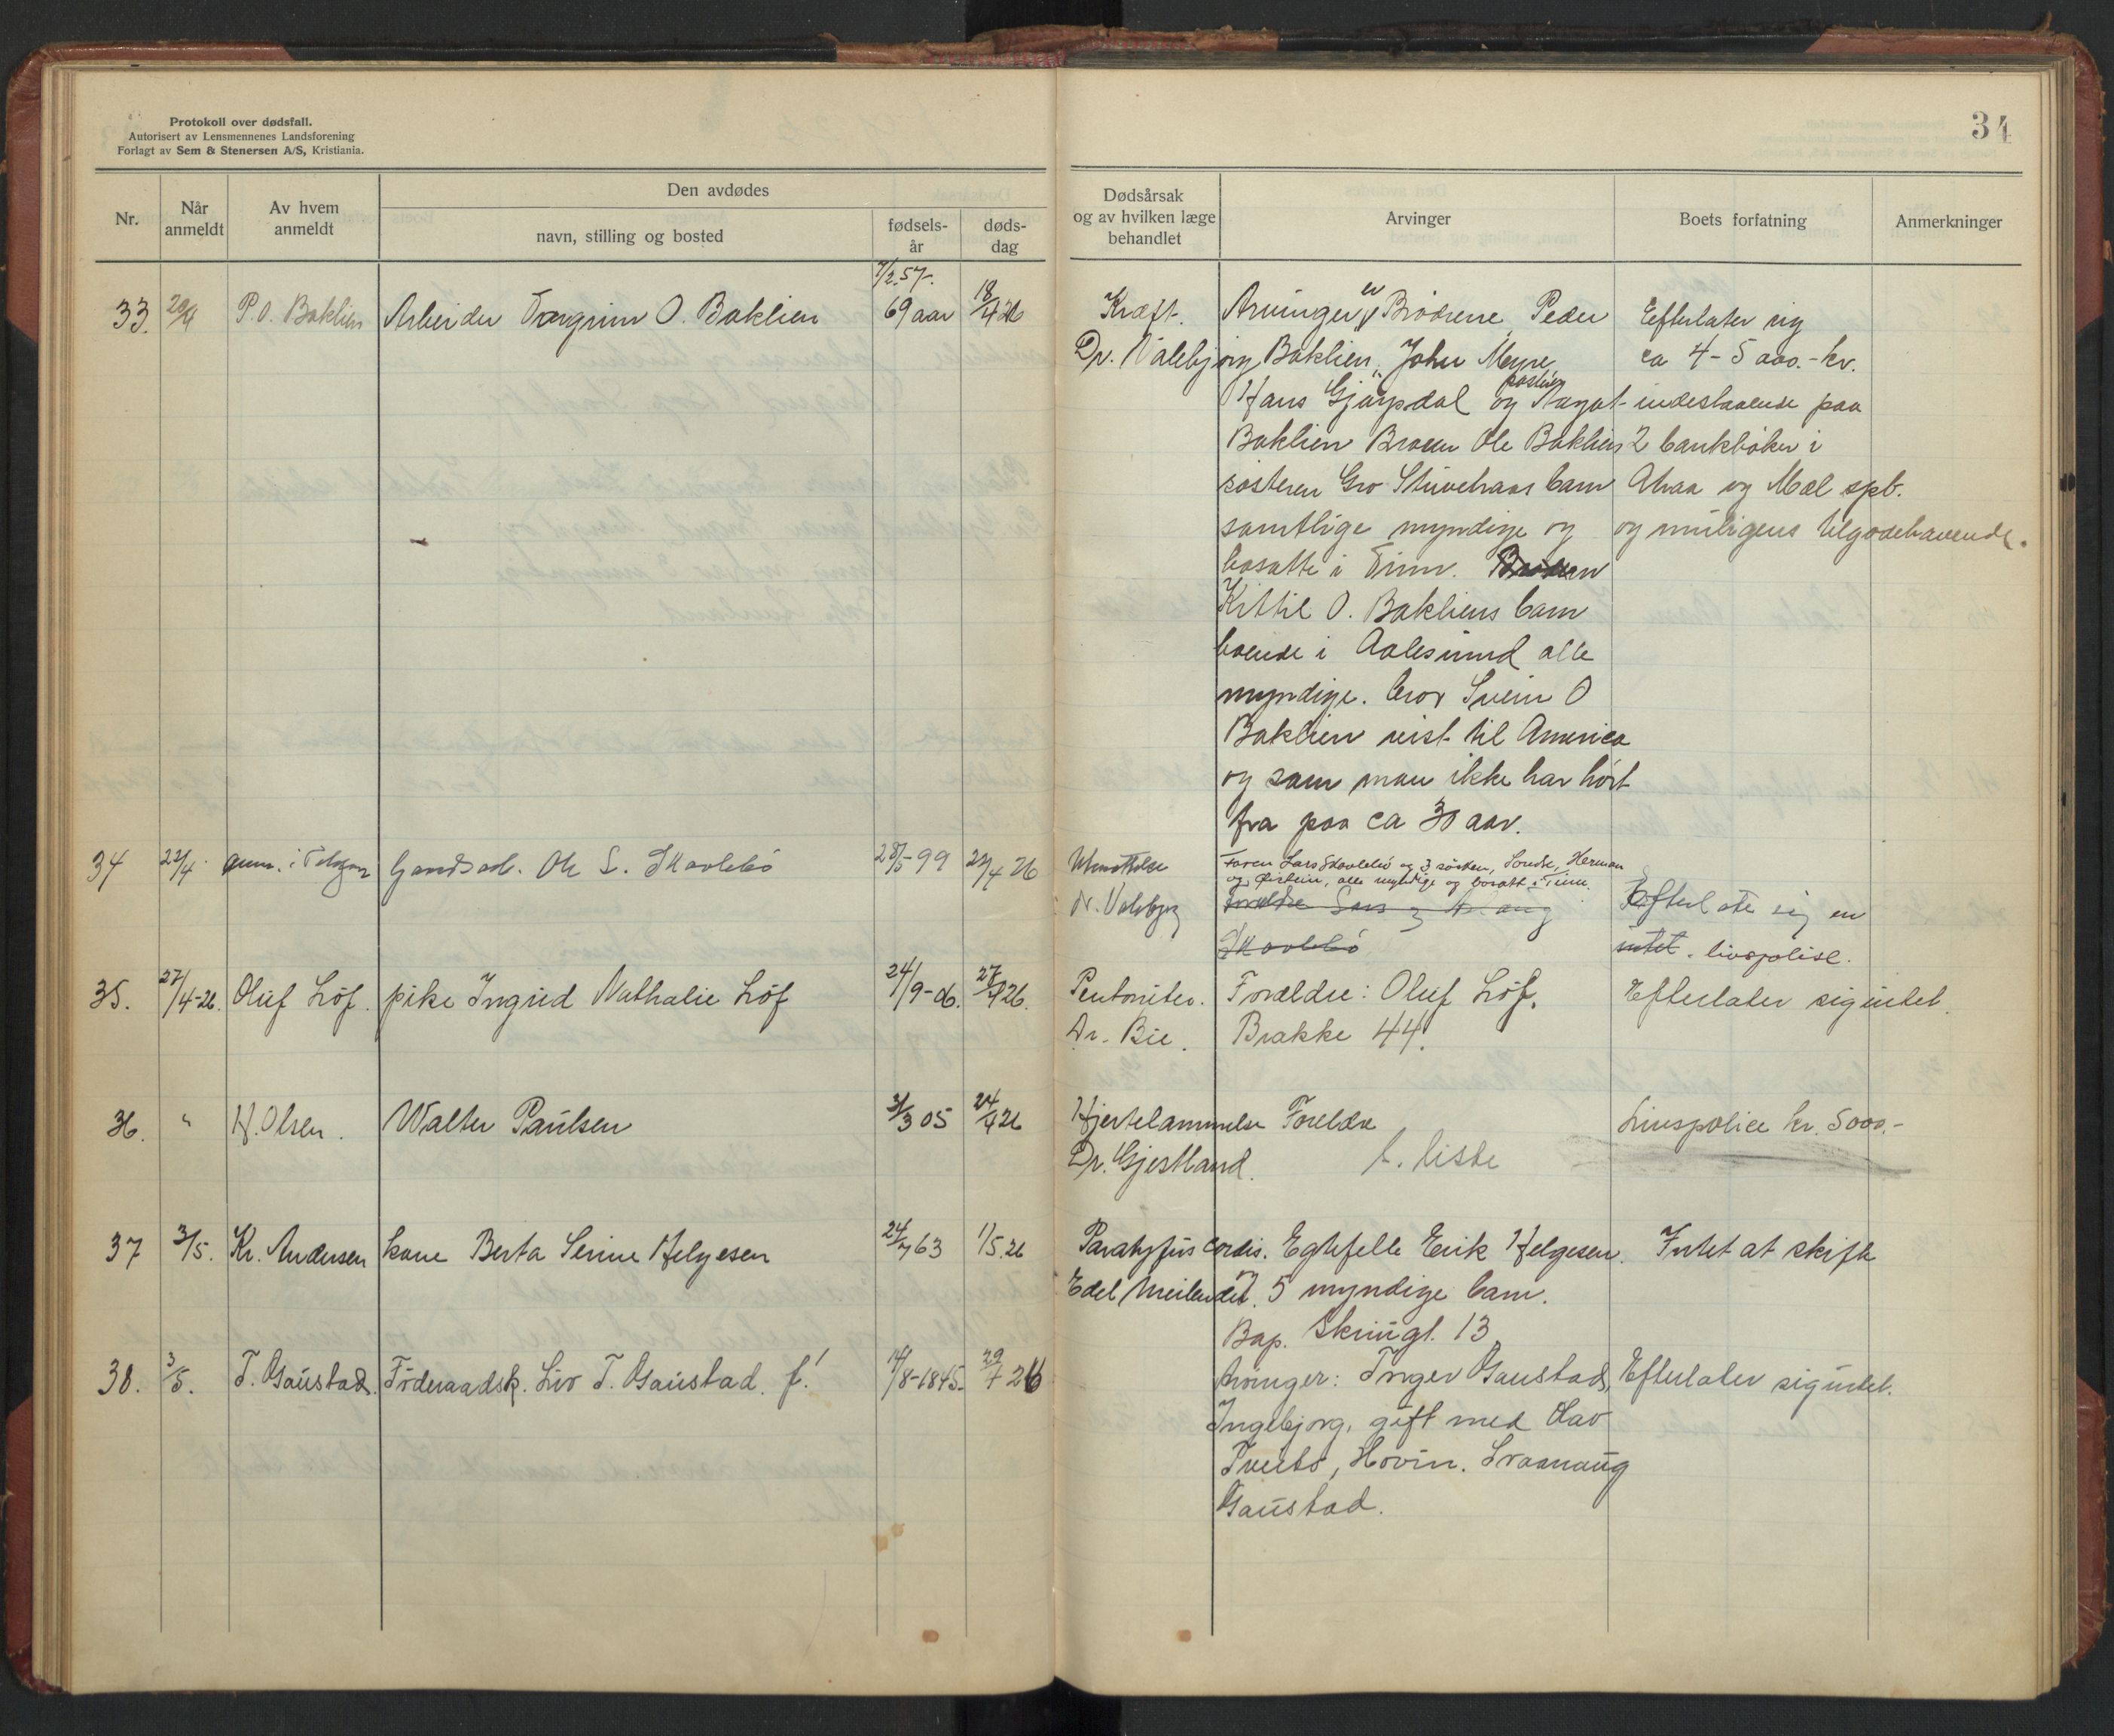 Protokoll over dødsfall.
Autorisert av Lensmennenes Landsforening
Forlagt av Sem & Stenersen A/S, Kristiania.
34
Nr.
Når anmeldt
Av hvem anmeldt
Den avdødes
navn, stilling og bosted
fødsels-år
døds-dag
Dødsårsak og av hvilken læge behandlet
Arvinger
Boets forfatning
Anmerkninger
33. 20/4 P. O. Baklien Arbeider Torgrim O. Baklien 7/2.57. 69 aar 18/4 26
Kræft.
Dr. Valebjørg
Arvinger er Brødrene Peder
Baklien, John Myre,
Hans Gjøysdal og
Baklien Broren Ole Bakliens
søsteren Gro Stuvehaas barn
samtlige myndige og
bosatte i Tinn. Broren
Kittil O. Bakliens barn
boende i Aalesund alle
myndige. bror Svein O
Baklien reist til America
og som man ikke har hørt
fra paa ca 30 aar.
Efterlater sig
ca 4-5 000.- kr.
indestaaende paa
2 bankbøker i
Atraa og Mæl spb.
og muligens tilgodehavende.
34 22/4 anm. i Telefon Gaardsarb. Ole L. Skavlebö 28/5-99 22/4 26
Dr. Valebjørg
Faren Lars Skavlebö og 3 søsken, Sondre, Herman
og Øistein, alle myndige og bosatt i Tinn.
Forældre Lars og
Skavlebö
Efterlate sig en
intet. livspolise.
35. 27/4-26. Oluf Löf. pike Ingrid Nathalie Löf 24/9-06. 27/4 26.
Peritoniter.
Dr. Bie.
Forældre: Oluf Löf,
Brakke 44.
Efterlater sig intet.
36. " H. Olsen. Walter Paulsen 31/3 05 24/4 26
Hjertelammelse
Dr. Gjestland.
Foreldre
l. liste
Livspolice kr. 5000.-
37 3/5. Kr. Andersen kone Berta Serine Helgesen 24/7 63 1/5.26
Paratyfus Cordis.
Edel Meilandet.
Egtefelle Erik Helgesen.
og 5 myndige barn.
Bap. Skriugt. 13
Intet at skifte
38. 3/5. T. Gaustad. Föderaadsk. Liv T. Gaustad. f! 14/8-1845. 29/4 26
Arvinger: Torger Gaustad,
Ingebjørg, gift med Olav
Tveito, Hovin. Svaanaug
Gaustad.
Efterlater sig intet.